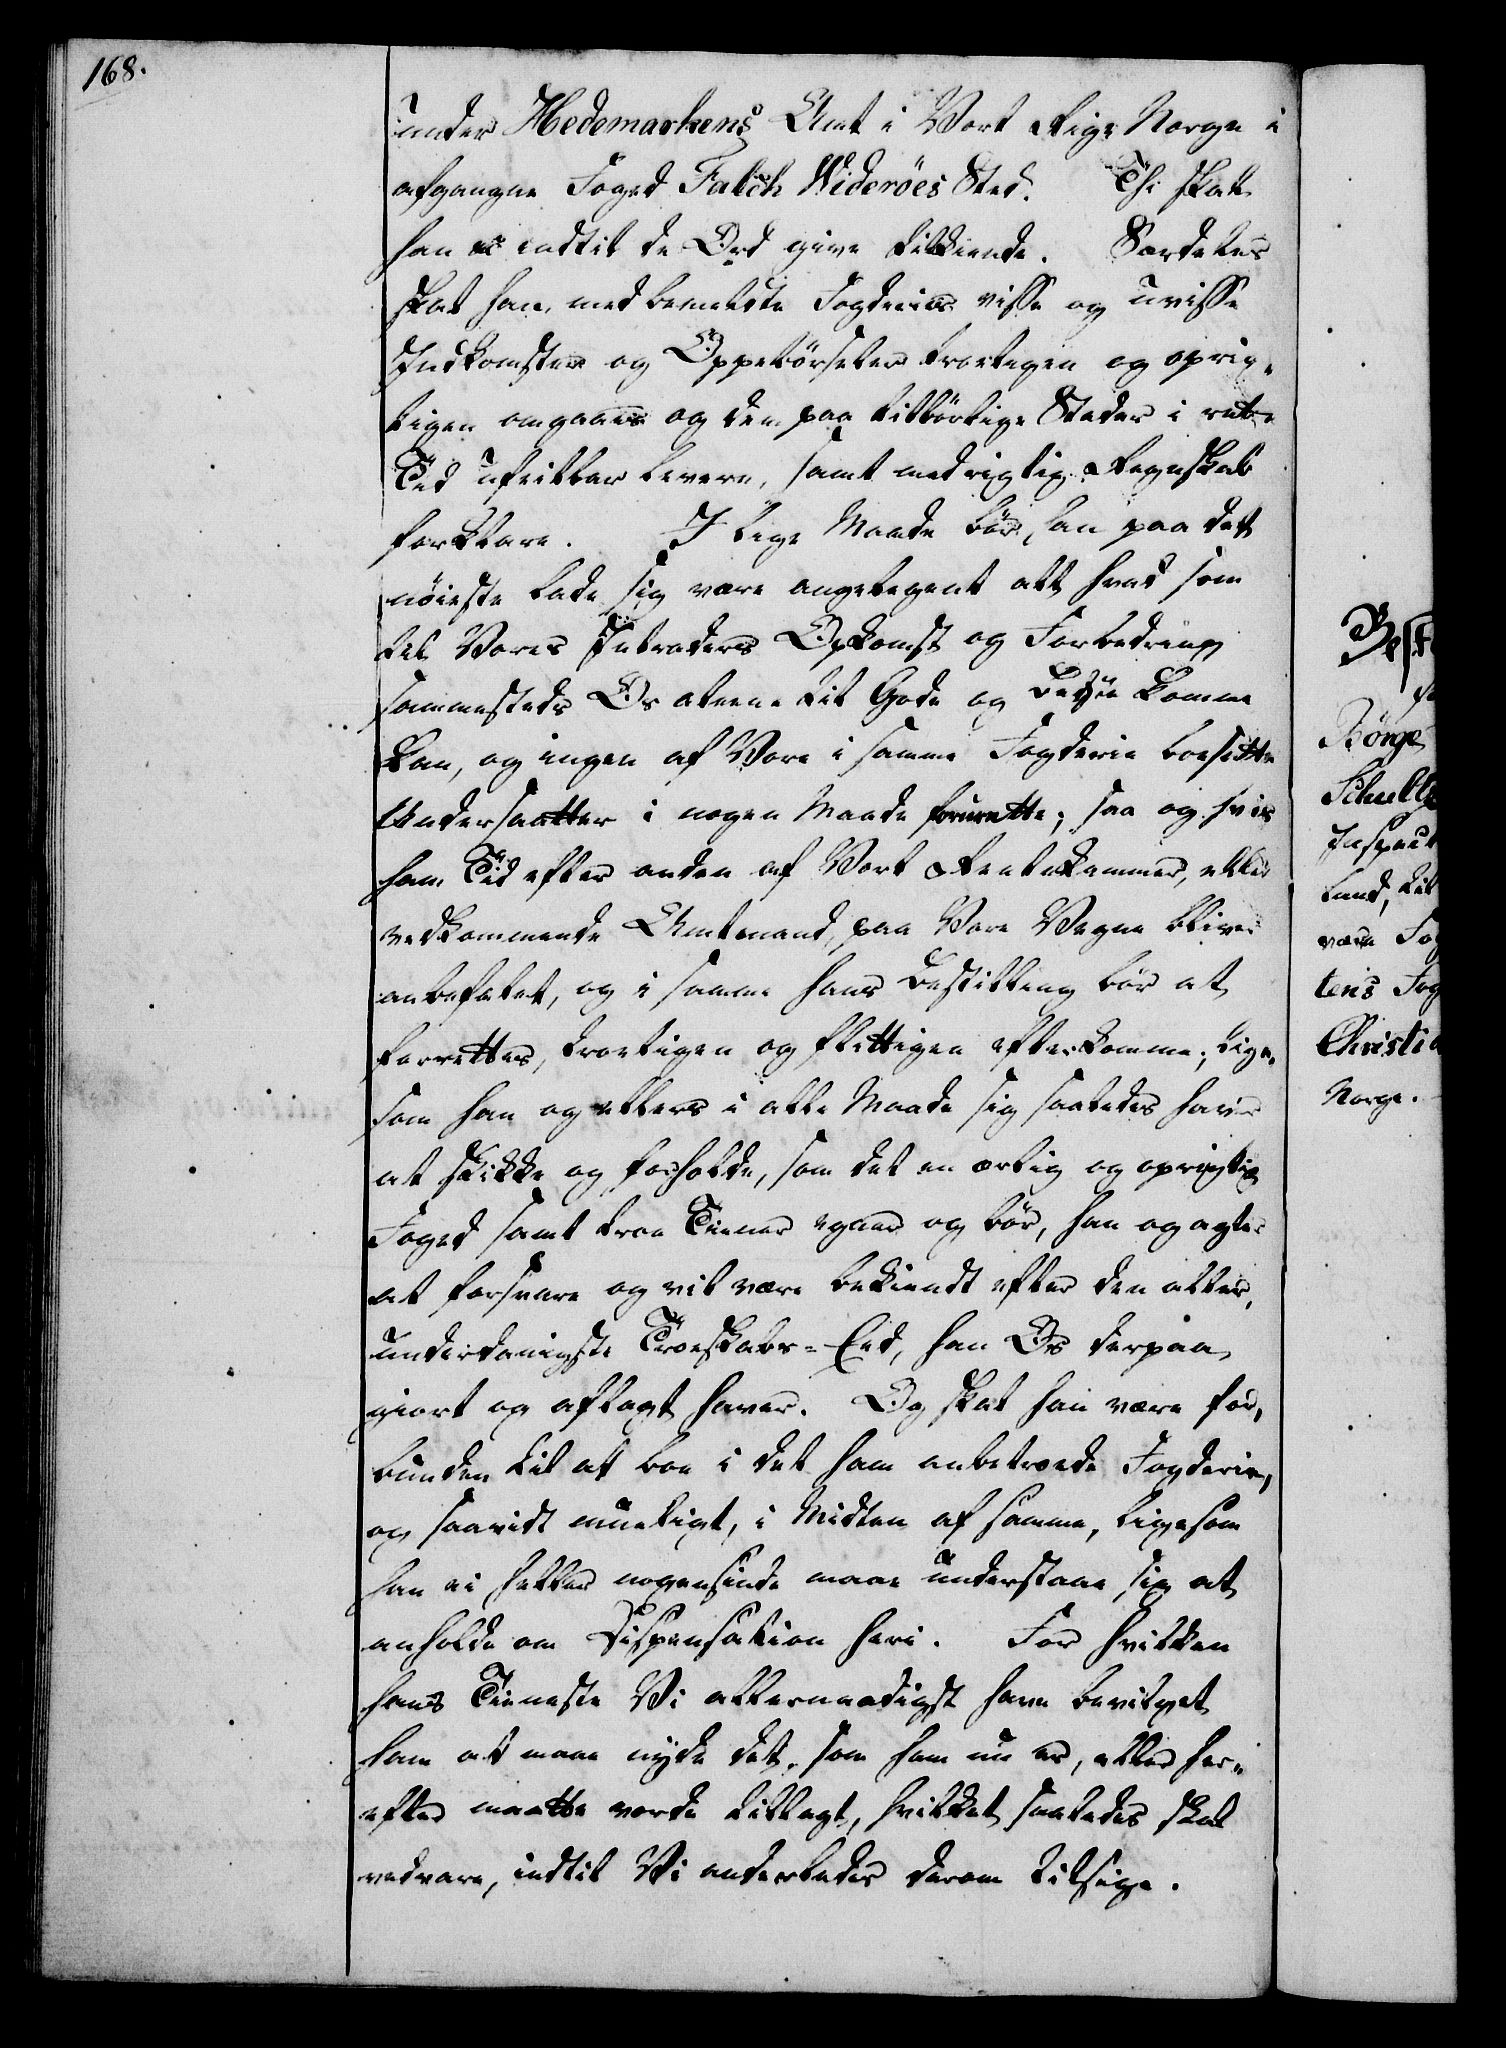 168.
under Hedemarkens Amt i Vort Rige Norge i
afgangne Foged Falch Wideröes Sted. Thi skal
han indtil de Ord give tilkiende. Særdeles
skal han med bemeldte Fogderies visse og uvisse
Indkomster og Oppebörseler troeligen og oprig-
tigen omgaaes og dem paa tilbörlige Steder i rette
Tiid ufeilbar levere, samt med rigtig Regnskab
forklare. I lige Maade bör han paa det
nöieste lade sig være angelegent alt hvad som
til Vores Intraders Opkomst og Forbedring
sammesteds Os alene til Gode og Beste komme
kan, og ingen af Vore i samme Fogderie boesatte
Undersaatter i nogen Maade forurette; saa og hvis
ham Tiid efter anden af Vort Rentekammer, eller
vedkommende Amtmand, paa Vore Vegne bliver
anbefalet, og i samme hans Bestilling bör at
forrettes, troeligen og flittigen efterkomme; lige-
som han og ellers i alle Maade sig saaledes haver
at skikke og forholde, som det en ærlig og oprigtig
Foged samt troe Tiener egner og bör, han og agter
at forsvare og vil være bekiendt efter den aller-
underdanigste Troeskabs-Eed, han Os derpaa
giort og aflagt haver. Og skal han være for-
bunden til at boe i det ham anbetroede Fogderie,
og saavidt mueligt, i Midten af samme, ligesom
han ei heller nogensinde maae understaae sig at
anholde om Dispensation heri. For hvilken
hans Tieneste Vi allernaadigst have bevilget
ham at maae nyde det, som ham nu er, eller her-
efter maatte vorde tillagt, hvilket saaledes skal
vedvare, indtil Vi anderledes derom tilsige.
Best
Börge
Schultz
Inspect
land, til
være Fog
lens Fog
Christia
Norge.